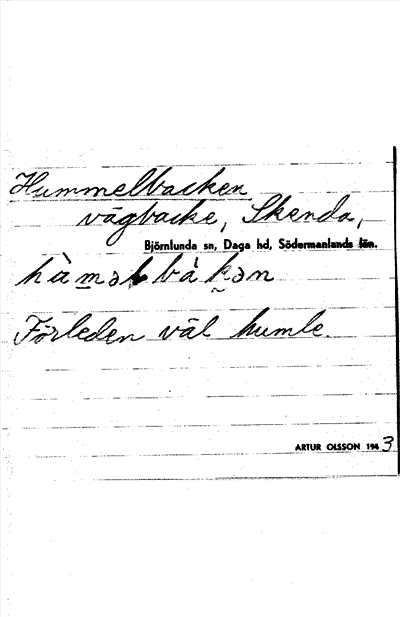 Hummelbacken
vägbacke, Skenda,
Björnlunda sn, Daga hd, Södermanlands län.
Förleden väl humle.
ARTUR OLSSON 1943